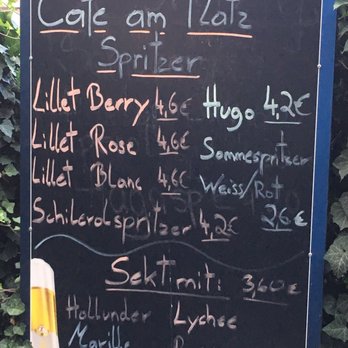 Cafe am Platz
Spritzer
Lillet Berry 4,6€
Lillet Rose 4,6€
Lillet Blanc 4,6€
Schilerolspritzer 4,2€
Hugo 4,2€
Sommespritzer
Weiss/Rot
2,6€
Sekt mit: 3,60€
Hollunder Lychee
Marille